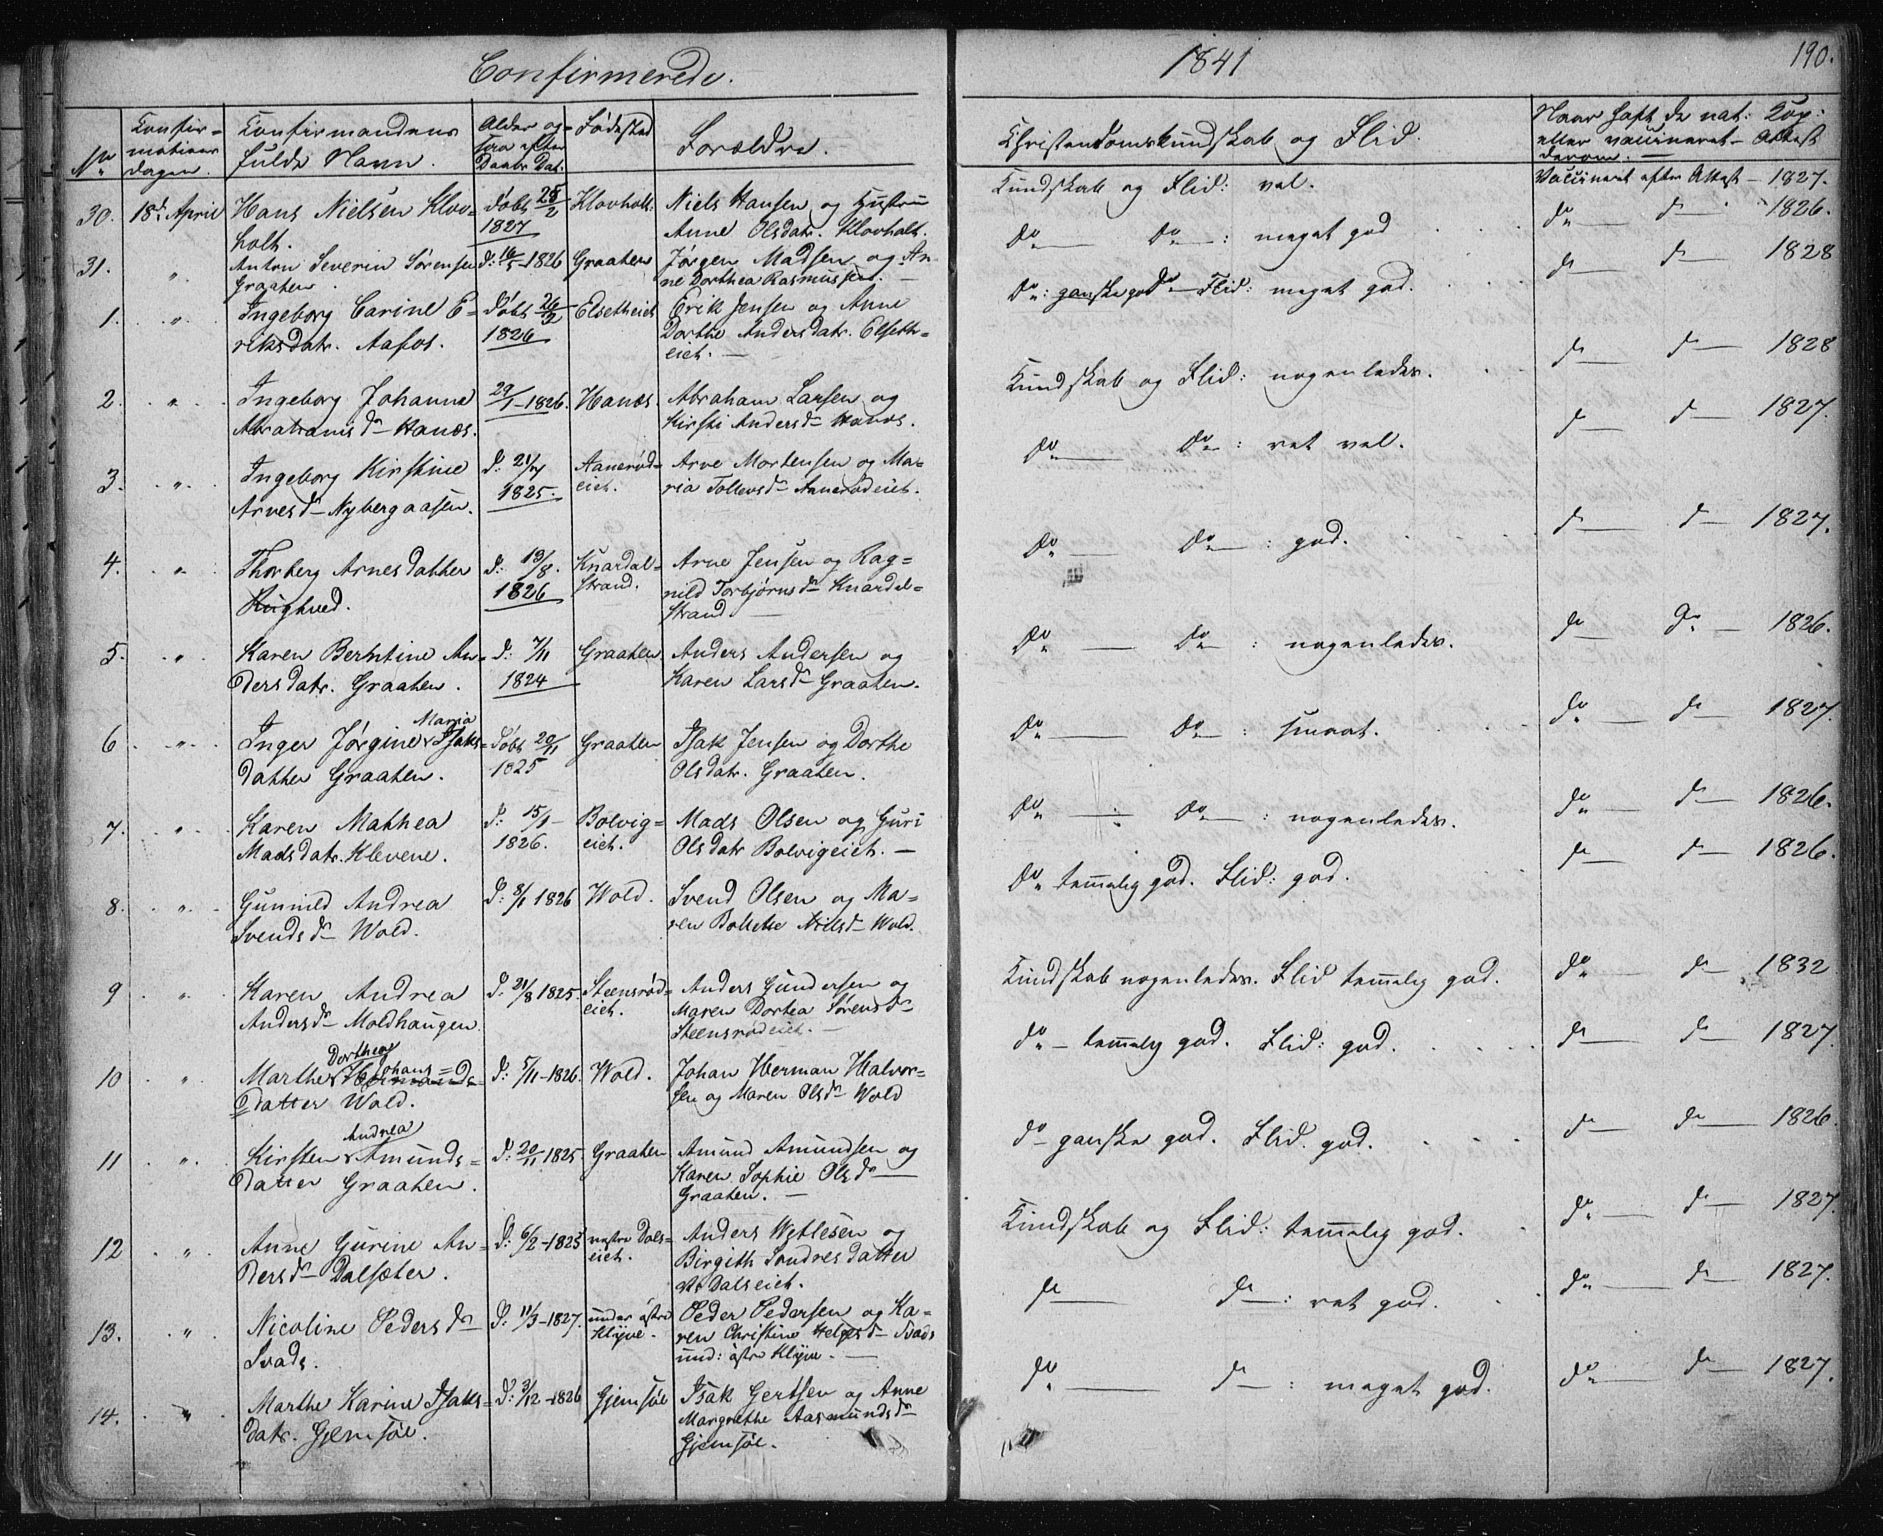 Confirmerede.
1841
190.
No
Confir=
mations
dagen.
Confirmandens
fulde Navn.
Alder og
saa efter
Daabs Dat.
Fødested
Forældre.
Christendomskundskab og Flid.
Naar haft de nat: Kop:
eller vaccineret – Attest
derom. –
30. 18de April Hans Nielsen Klov=
holt.
døbt 25/2
1827
Klovholt.
Niels Hansen og Hustru
Anne Olsdatr. Klovholt.
Kundskab og Flid: vel.
Vaccineret efter Attest – 1827.
31. " Anton Severin Sørensen
Graaten.
d: 16/5 – 1826 Graaten
Jørgen Madsen og An
ne Dorthea Rasmussen. –
do — do — : meget god
do — do — 1826.
1. " Ingeborg Carine E=
riksdatr. Aafos.
døbt 26/2
1826
Elsetheiet
Erik Jensen og Anne
Dorthe Andersdatr. Elseth=
eiet. –
do: ganske god – Flid: meget god.
do — do — 1828
2. " Ingeborg Johanne
Abrahamsdr Hanæs.
29/1 – 1826. Hanæs.
Abraham Larsen og
Kirsti Andersdr Hanæs.
Kundskab og Flid: nogenledes.
do — do — 1828
3. " Ingeborg Kirstine
Arnesdr Nybergaasen.
d: 21/7
1825.
Aanerød=
eiet.
Arve Mortensen og Ma=
ria Tollevsdr Aanerødeiet.
do — do — : ret vel.
do — do — 1827.
4. " Thorberg Arnesdatter
Rughved.
d: 19/8.
1826
Knardal=
strand.
Arne Jensen og Rag=
nild Torbjørnsdr Knardal=
strand –
do — do — : god.
do — do — 1827.
5. " Karen Berntine An=
dersdatr. Graaten.
d: 7/11
1824
Graaten
Anders Andersen og
Karen Larsdr Graaten.
do — do — : nogenledes.
do — do — 1826.
6 " Inger Jørgine Maria Isaks=
datter Graaten.
døbt 20/11
1825
Graaten
Isak Jensen og Dorthe
Olsdatr. Graaten.
do — do — : smaat.
do — do — 1827.
7. " Karen Mathea
Madsdatr. Klevene.
d: 15/1 –
1826.
Bolvig=
eiet.
Mads Olsen og Guri
Olsdatr Bolvigeiet. –
do — : do — : nogenledes.
do — do — 1826.
8. " Gunnild Andrea
Svendsdr Wold.
d: 8/1 1826 Wold.
Svend Olsen og Ma=
ren Boltette Nillsdr Wold.
do temmelig god. Flid: god.
do — do — 1826.
9 " Karen Andrea
Andersdr Moldhaugen.
d: 21/8 1825. Steensrød=
eiet.
Anders Gundersen og
Maren Dortea Sørensdr
Steensrødeiet. –
Kundskab nogenledes. Flid temmelig god.
do — do — 1832
10 " Marthe Dorthea Johans=
datter Wold.
d: 5/11 – 1826. Wold.
Johan Herman Halvor=
sen og Maren Olsdr Wold
do – temmelig god. Flid: god.
do — do — 1827.
11 " Kirsten Andrea Amunds=
datter Graaten.
d: 20/11 – 1825. Graaten
Amund Amundsen og
Karen Sophie Olsdr —
Graaten. –
do – ganske god. Flid. god.
do — do — 1826.
12 " Anne Gurine An=
dersdr Dalsæter.
d: 6/2 – 1825 vestre Dals=
eiet.
Anders Wetlesen og
Birgith Sondresdatter
Vr Dalseiet.
Kundskab og Flid: temmelig god.
do — do — 1827.
13. " Nicoline Pedersdr
Svads.
d: 11/3 – 1827. under østre
Klyve.
Peder Pedersen og Ka=
ren Christine Helgesdr Svads
und: østre Klyve. –
do — do — : ret god.
do — do — 1827.
14. " Marthe Karine Isaks=
datr. Gjemsøe.
d: 3/12 – 1826 Gjemsøe
Isak Gertsen og Anne
Margrethe Aasmundsdr
Gjemsøe.
do — do — : meget god.
do — do — 1827.